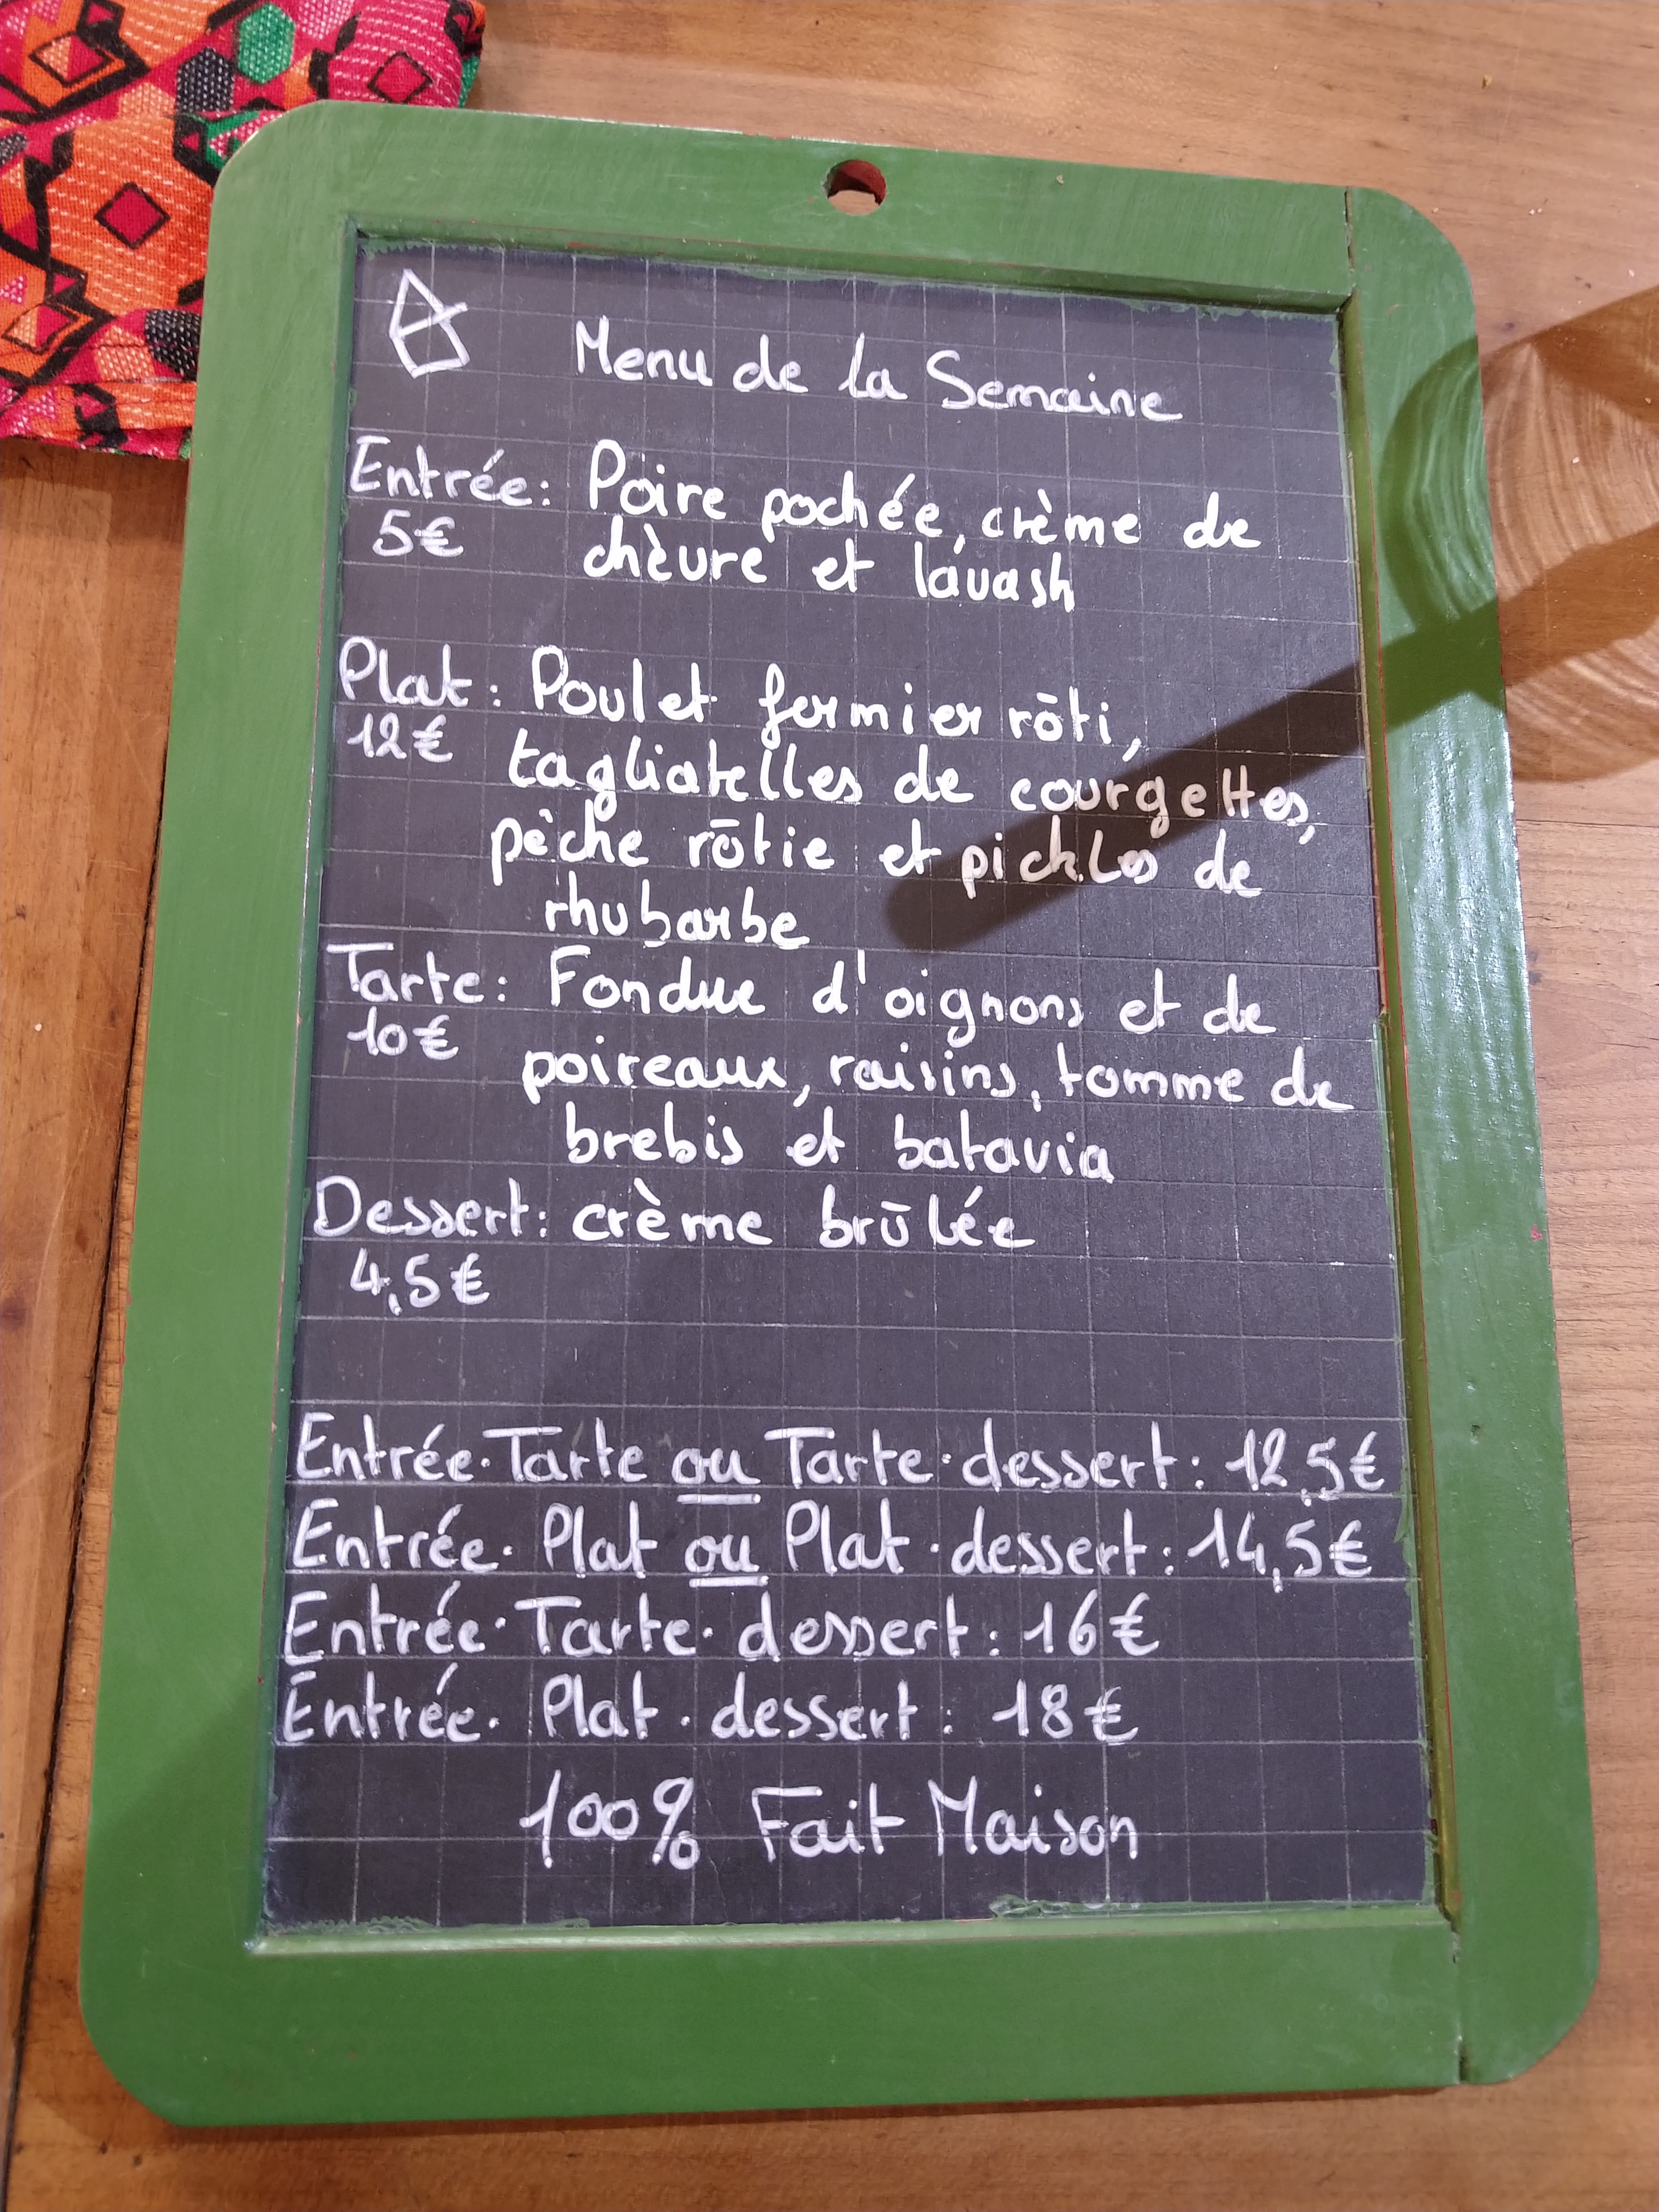 Menu de la Semaine
Entrée: Poire pochée, crème de
5€ chèvre et lavash
Plat: Poulet fermier rôti,
12€ tagliatelles de courgettes,
pêche rôtie et pickles de
rhubarbe
Tarte: Fondue d'oignons et de
10€ poireaux, raisins, tomme de
brebis et batavia
Dessert: crème brûlée
4,5€
Entrée·Tarte ou Tarte·dessert: 12,5€
Entrée·Plat ou Plat·dessert: 14,5€
Entrée·Tarte·dessert: 16€
Entrée·Plat·dessert: 18€
100% Fait Maison